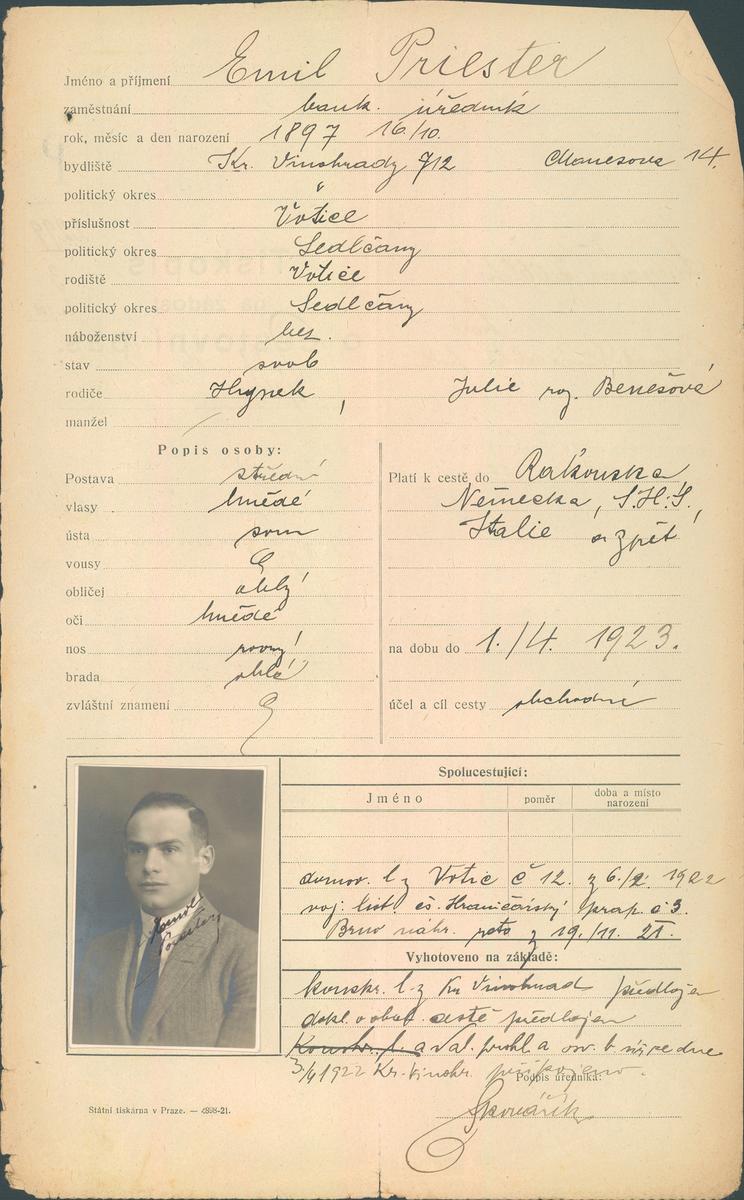 Jméno a příjmení Emil Priester
zaměstnání bank. úředník
rok, měsíc a den narození 1897 16/10.
bydliště Kr. Vinohrady 712 Manesova 14.
politický okres "
příslušnost Votice
politický okres Sedlčany
rodiště Votice
politický okres Sedlčany
náboženství bez.
stav svob
rodiče Hynek, Julie roz. Benešová
manžel
Popis osoby:
Postava střední
vlasy hnědé
ústa soum
vousy
obličej oblý
oči hnědé
nos rovný
brada oblá
zvláštní znamení
Platí k cestě do Rakouska,
Německa, S.H.S,
Italie a zpět
na dobu do 1./4. 1923.
účel a cíl cesty obchodní
Spolucestující:
Jméno
poměr
doba a místo
narození
domov. l z Votic č 12. z 6./2. 1922
voj. list. čs. Hraničářský prap. č 3.
Brno náhr. z 19./11. 21.
Vyhotoveno na základě:
konskr. l z Kr Vinohrad předložen
předložen
Konskr. l. a prohl a ov. b ze dne
3/4 1922 Kr. Vinohr. připojeno.
Podpis úředníka:
Emil
Priester
Státní tiskárna v Praze. — 4898-21.